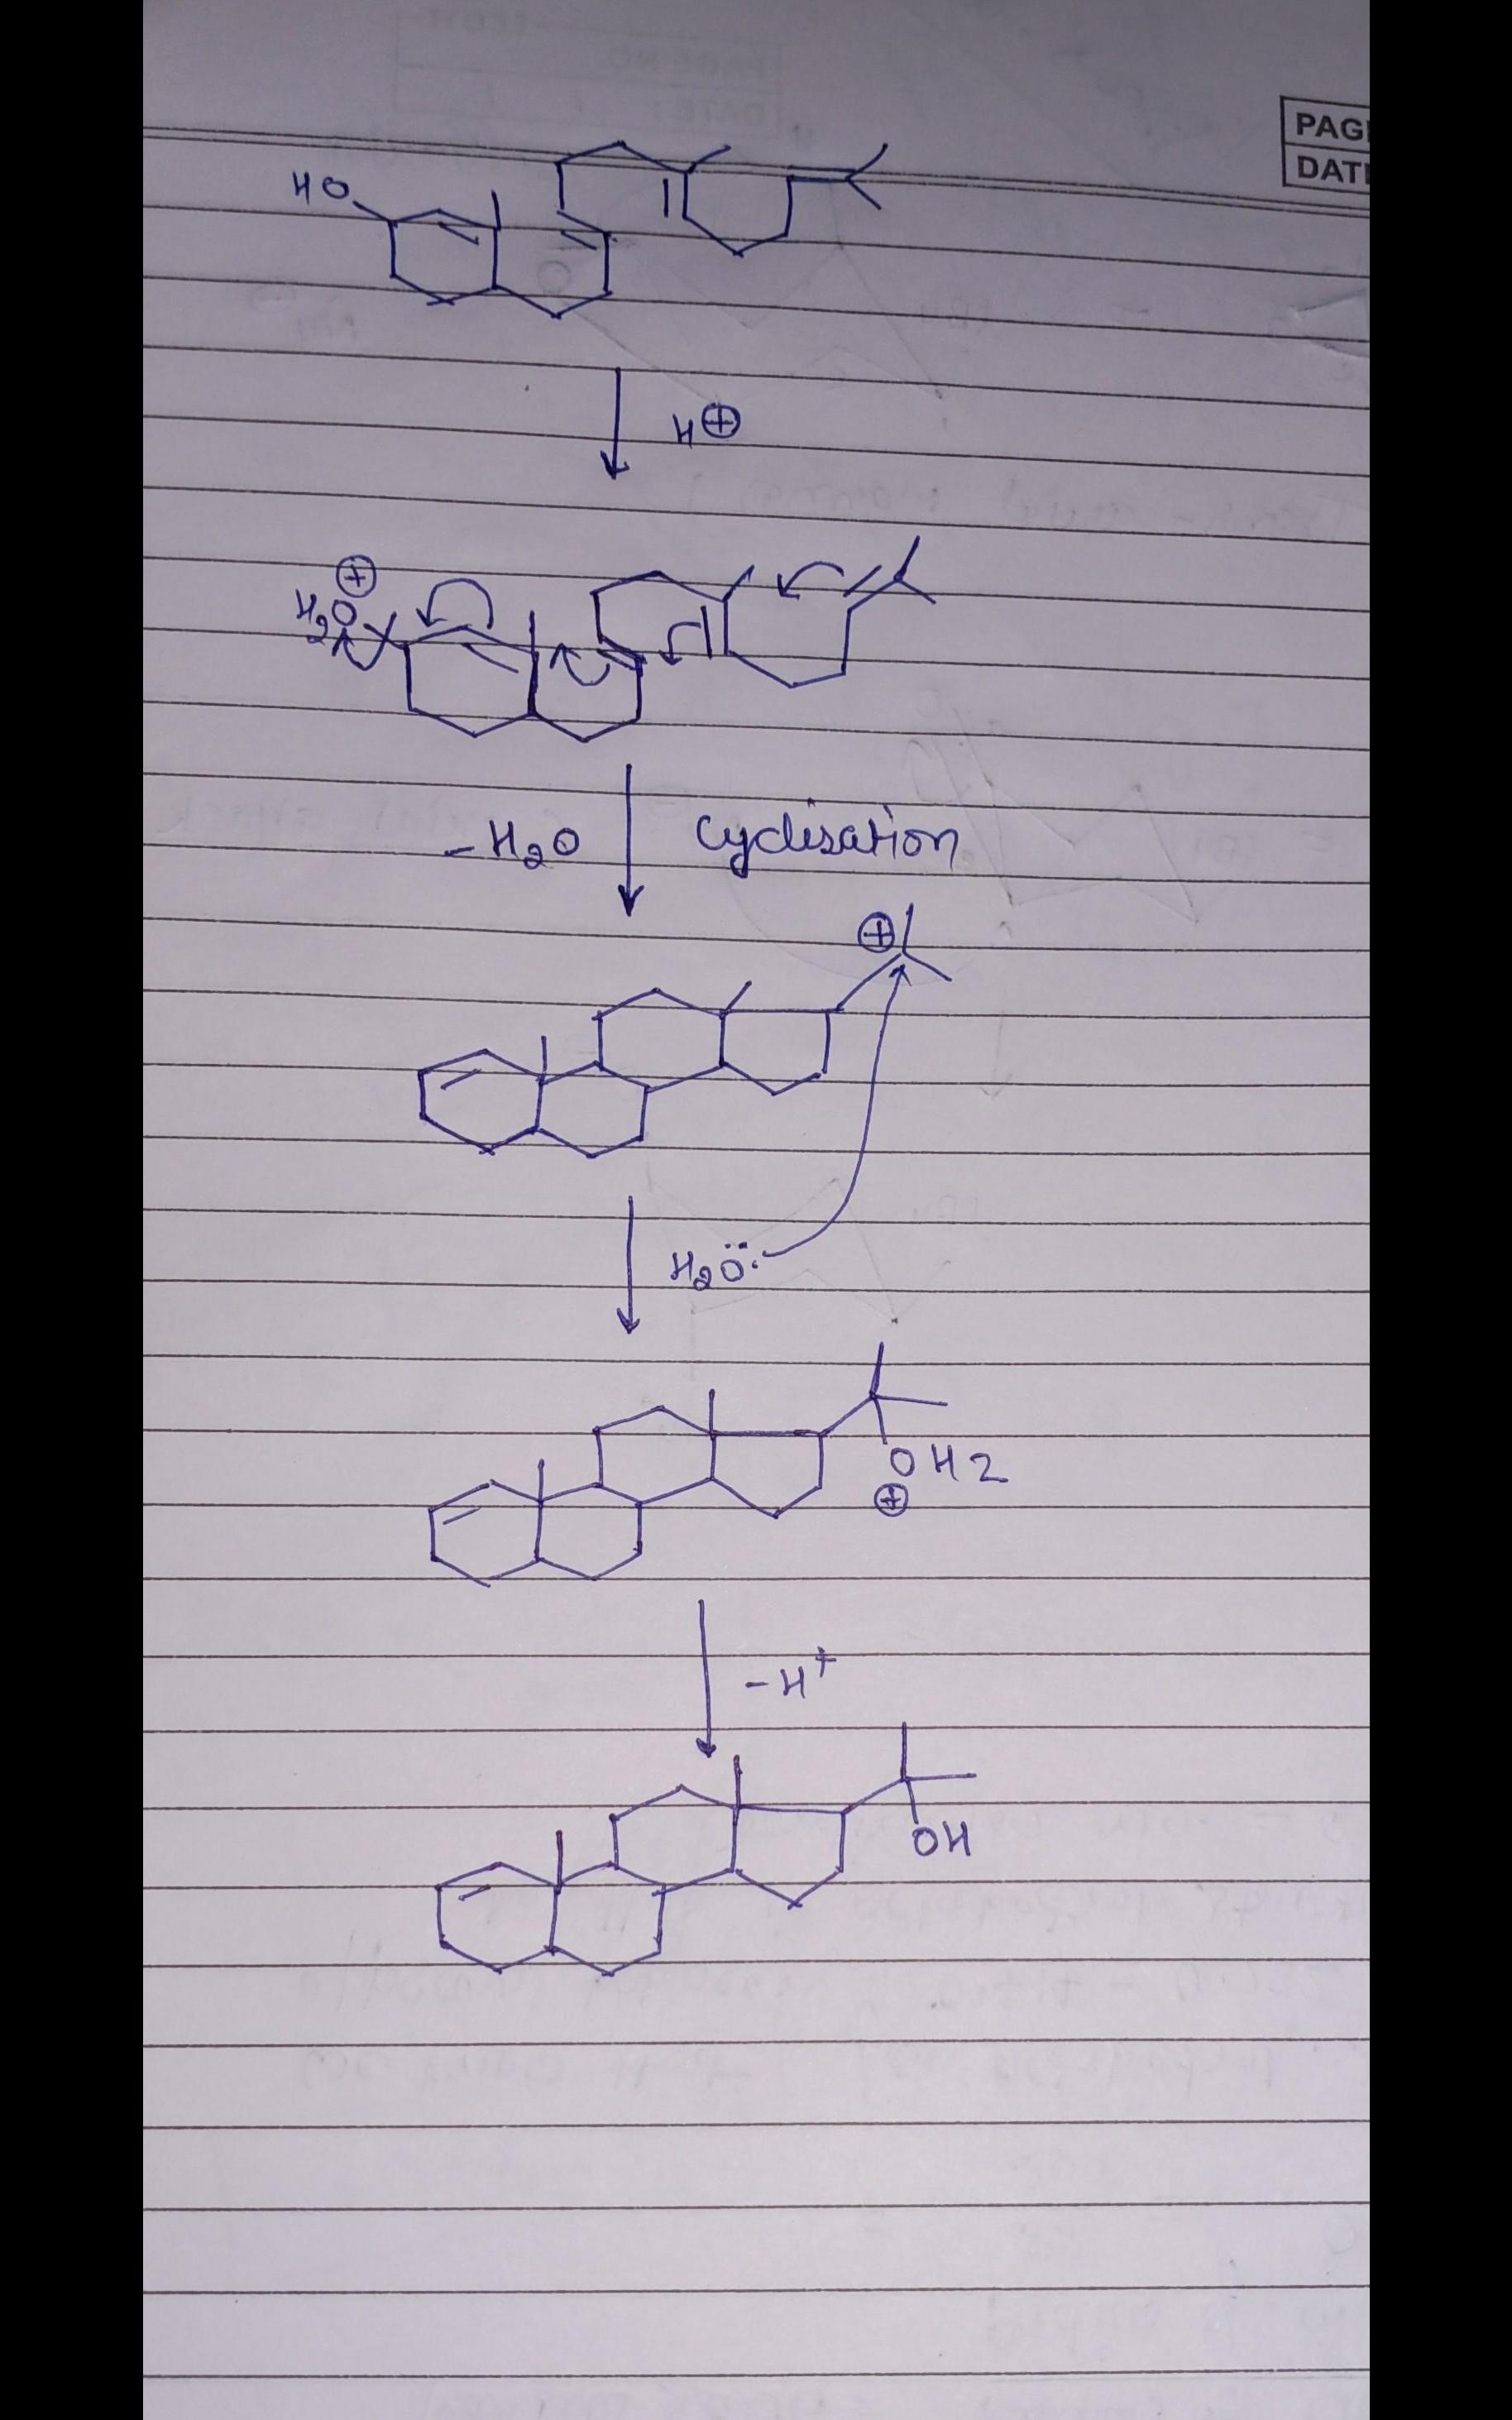 PAG
DAT
HO
H⊕
⊕
H₂O
-H₂O Cyclisation
⊕
H₂Ö:
OH2
⊕
-H⁺
OH